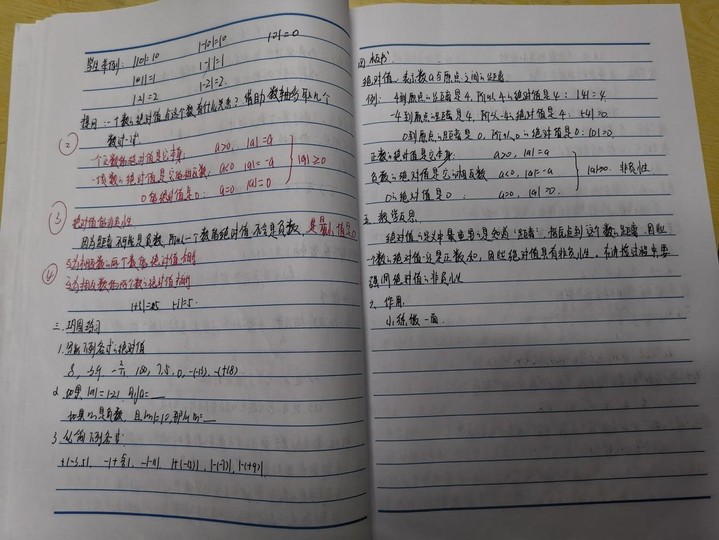 学生举例: |10|=10 |-10|=10 |0|=0
|1|=1 |-1|=1
|2|=2 |-2|=2.
提问: 一个数的绝对值与这个数有什么关系? 借助数轴多取几个
数试一试
② 一个正数的绝对值是它本身. a>0, |a|=a
一个负数的绝对值是它的相反数, a<0 |a|=-a
0的绝对值是0. a=0 |a|=0
|a|≥0
③ 绝对值的非负性
因为距离不可能是负数, 所以一个数的绝对值不会是负数, 是最小值是0
④ 互为相反数的两个数的绝对值相等
|+5|=5 |-5|=5.
三. 巩固练习
1. 分别下列各式的绝对值
100, 7.5, 0, -(-13), -(+18)
2. 如果|a|=|2|, 则a=
如果m是负数, 且|m|=10, 那么m=
3. 化简下列各式
|-(-7)|, |-(+9)|
四 板书
绝对值: 表示数a与原点之间的距离.
例: 4到原点的距离是4, 所以4的绝对值是4: |4|=4.
-4到原点的距离是4, 所以-4的绝对值是4: |-4|=4.
0到原点的距离是0, 所以0的绝对值是0: |0|=0.
正数的绝对值是它本身: a>0, |a|=a
负数的绝对值是它的相反数 a<0, |a|=-a
0的绝对值是0. a=0, |a|=0.
|a|≥0. 非负性
五. 教学反思.
绝对值的定义中最重要的是知道"距离", 指原点到这个数的距离, 因此
个数的绝对值的是正数和0, 因此绝对值具有非负性, 在讲授过程中要
强调绝对值的非负性
六. 作用.
小练做一面.